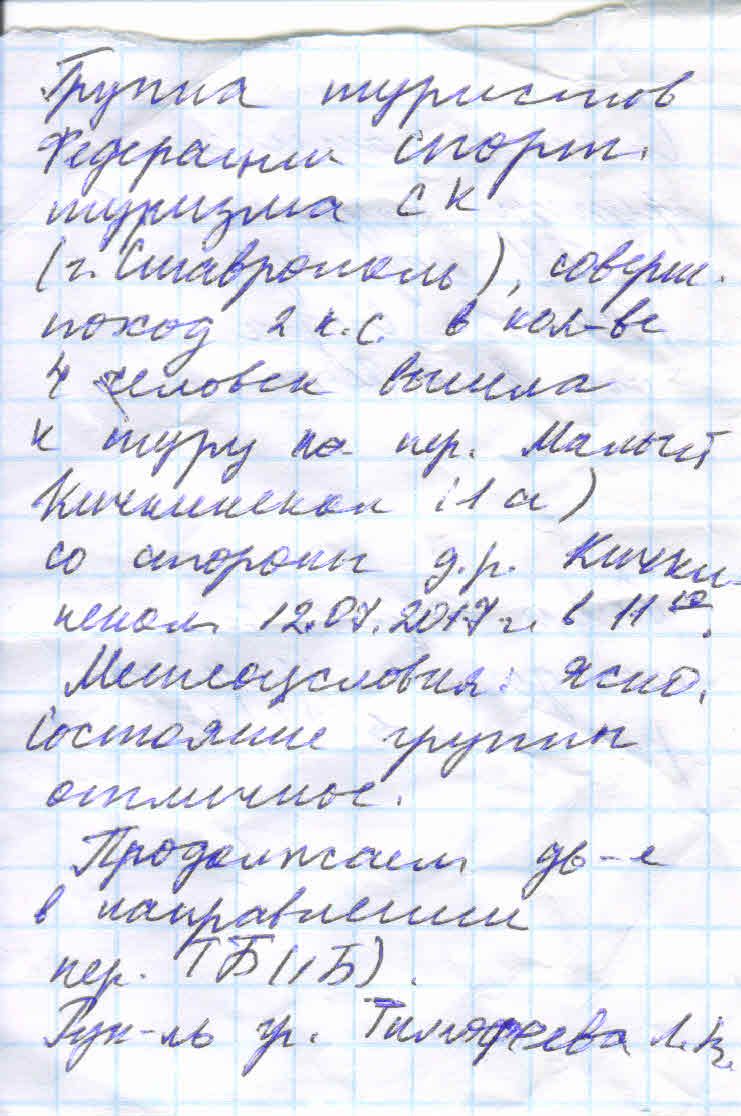 Группа туристов
Федерации спорт.
туризма СК
(г. Ставрополь), соверш.
поход 2 к.с. в кол-ве
4 человек вышла
к туру на пер. Малый
Кичкинекол (1а)
со стороны д.р. Кички-
некол 12.07.2017 г. в 11
Метеоусловия: ясно.
Состояние группы
отличное.
Продолжаем дв-е
в направлении
пер. ТБ (1Б).
Рук-ль гр. Тимофеева Л.